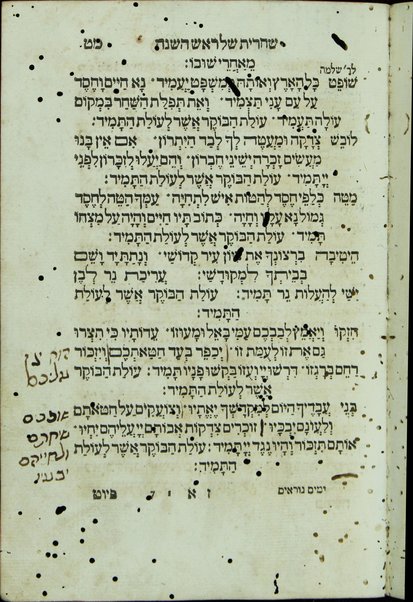 שחרית של ראש השנה מט
מאחרי שובו:
לר' שלמה
שופט כל הארץ ואותה במשפט יעמיד׳ נא חיים וחסד
על עם עני תצמיד׳ ואת תפלת השחר במקום
עולה תעמיד׳ עולת הבוקר אשר לעולת התמיד:
לובש צדקה ומעטה לך לבד היתרון׳ אם אין בנו
מעשים זכרה ישיני חברון׳ והם יעלו לזכרון לפני
יי תמיד׳ עולת הבוקר אשר לעולת התמיד:
מטה כלפי חסד להטות איש לתחיה׳ עמך הטה לחסד
גמול נא עליו וחיה׳ כתוב תיו חיים והיה על מצחו
תמיד׳ עולת הבוקר אשר לעולת התמיד:
היטיבה ברצונך את ציון עיר קדושי׳ ונתת יד ושם
בביתך למקודשי: עריכת נר לבן
ישי להעלות נר תמיד׳ עולת הבוקר אשר לעולת
התמיד:
חזקו ויאמץ לבבכם עמי באל ומעוזו׳ עדותיו כי תצרו
גם את זו לעמת זו׳ יכפר בעד חטאתכם ויזכור
רחם ברגזו׳ דרשו יי ועוזו בקשו פניו תמיד: עולת הבוקר
אשר לעולת התמיד:
בני עבדיך היום למקדשך יאתיו׳ וצועקים על חטאתם
ולעונם יבכיו׳ זוכרים צדקות אבותם יי עליהם יחיו׳
אותם תזכור והיו נגד יי תמיד: עולת הבוקר אשר לעולת
התמיד:
ימים נוראים ז א י ל פיוט